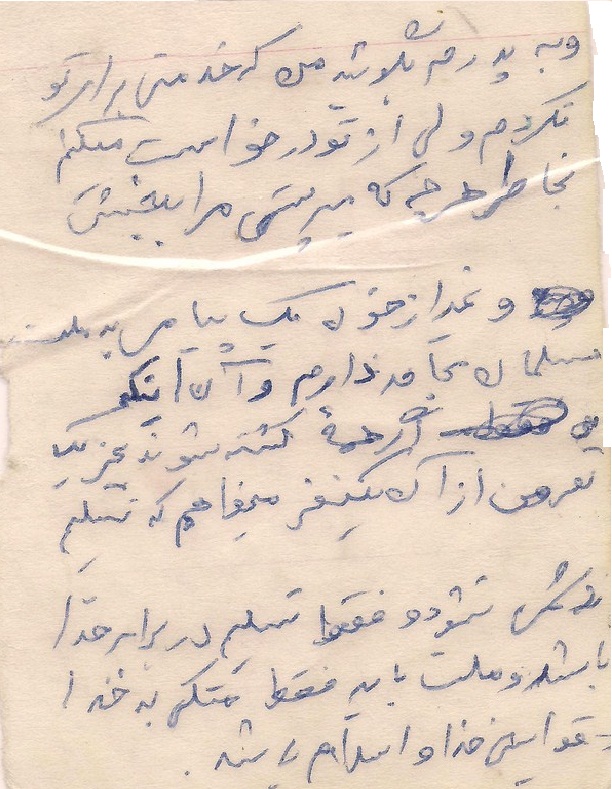 و به پدرم بلاشد من که خدمتی برای تو
نکردم ولی از تو درخواست میکنم
بخاطر هر چه که میپرستی مرا ببخشش
و بعد از خود یک پیامی به ملت
مسلمان بجا میذارم و آن اینکه
اگر همه کشته شوند بجز یک
نفر من از آن یکنفر میخواهم که تسلیم
نشود و فقط تسلیم در برابر خدا
باشد و ملت باید فقط متکی به خدا
قوانین خدا و اسلام باشد.